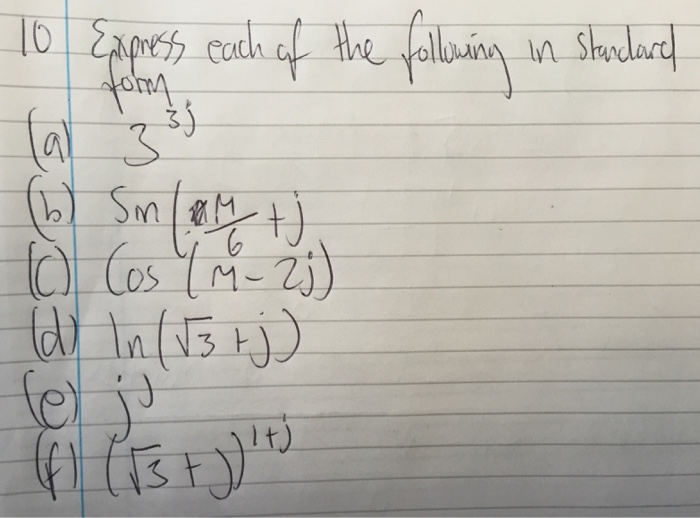 10 Express each of the following in standard
form
(a) 3^3j
(b) Sin(π/6 + j
(c) Cos (π - 2j)
(d) ln(√3 + j)
(e) j^j
(f) (√3 + j)^1+j